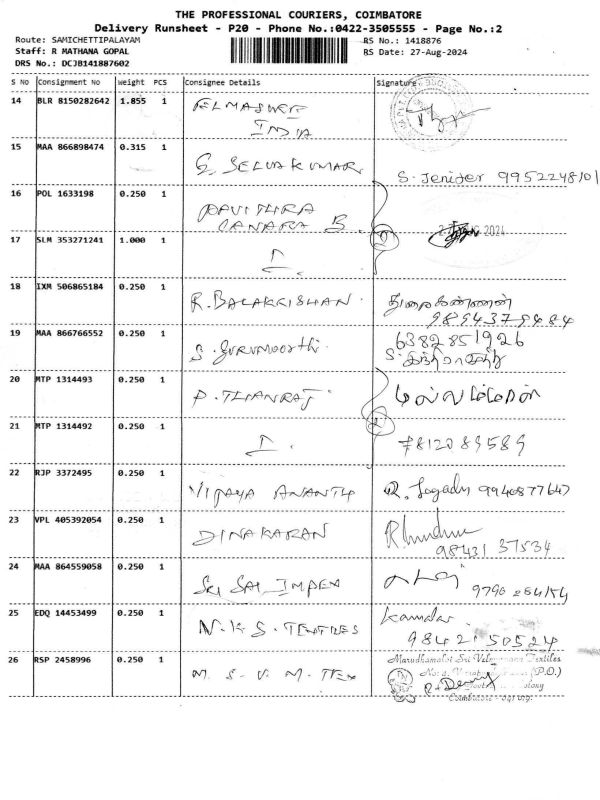 THE PROFESSIONAL COURIERS, COIMBATORE
Delivery Runsheet - P20 - Phone No.:0422-3505555 - Page No.:2
Route: SAMICHETTIPALAYAM RS No.: 1418876
Staff: R MATHANA GOPAL RS Date: 27-Aug-2024
DRS No.: DCJB141887602
S No Consignment No Weight PCS Consignee Details Signature
14 BLR 8150282642 1.855 1
INDIA
15 MAA 866898474 0.315 1 G. SELVAKUMAR S. Jenifer 9952248101
16 POL 1633198 0.250 1 PAVITHRA
CANARA B. 2024
17 SLM 353271241 1.000 1
18 IXM 506865184 0.250 1 R. BALAKRISHAN துரைகண்ணன்
9894379484
19 MAA 866766552 0.250 1 S. GURUMOORTHI 6382851926
20 MTP 1314493 0.250 1 P. THANRAJ
21 MTP 1314492 0.250 1 7812089589
22 RJP 3372495 0.250 1 VIJAYA ANANTH 9940877647
23 VPL 405392054 0.250 1 DINAKARAN
98431 37534
24 MAA 864559058 0.250 1 SRI SAI IMPEX
9790 264154
25 EDQ 14453499 0.250 1 N.K.S. TEXTRES
98421 50524
26 RSP 2458996 0.250 1 M. S. V. M. TTEX Marudhamalai Sri Velmurugan Textiles
(P.O.)
Coimbatore - 641 019.